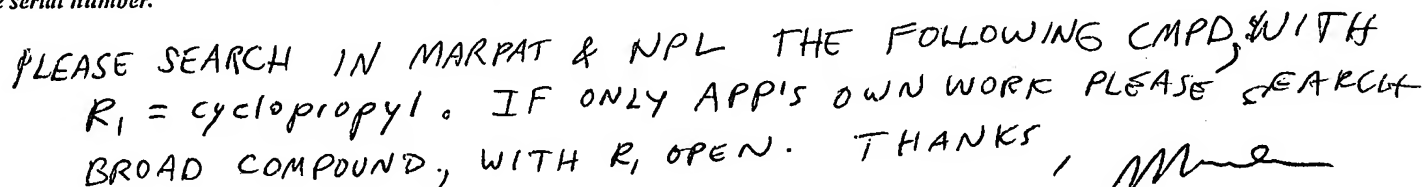 e serial number.
PLEASE SEARCH IN MARPAT & NPL THE FOLLOWING CMPD, WITH
R1 = cyclopropyl. IF ONLY APP'S OWN WORK PLEASE SEARCH
BROAD COMPOUND, WITH R1 OPEN. THANKS,